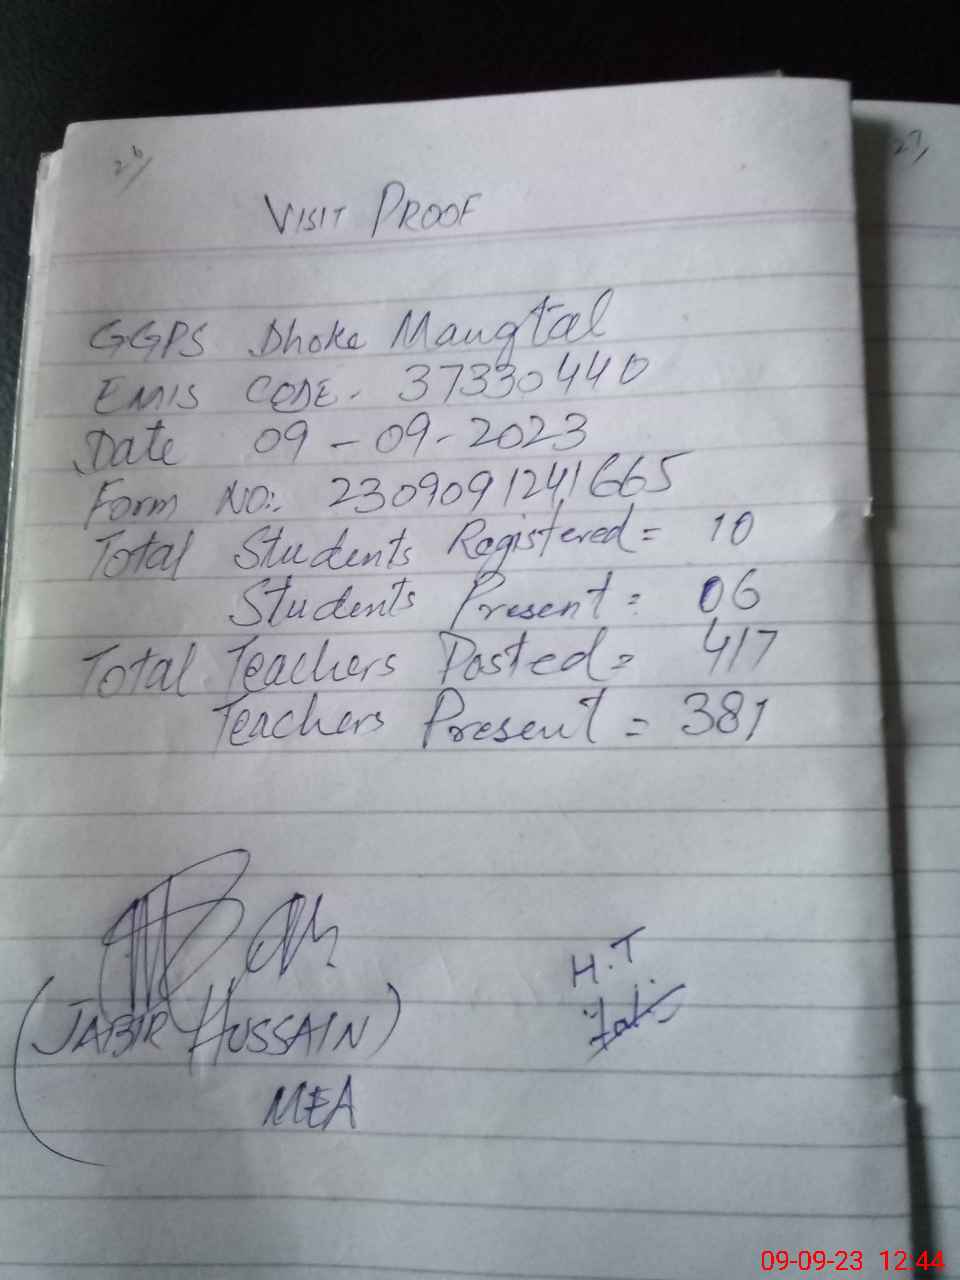 26/
27/
VISIT PROOF
GGPS Dhoke Mangtal
EMIS CODE. 37330440
Date 09-09-2023
Form NO:. 2309091241665
Total Students Registered = 10
Students Present = 06
Total Teachers Posted = 417
Teachers Present = 381
H.T
(JABIR HUSSAIN)
MEA
09-09-23 12:44